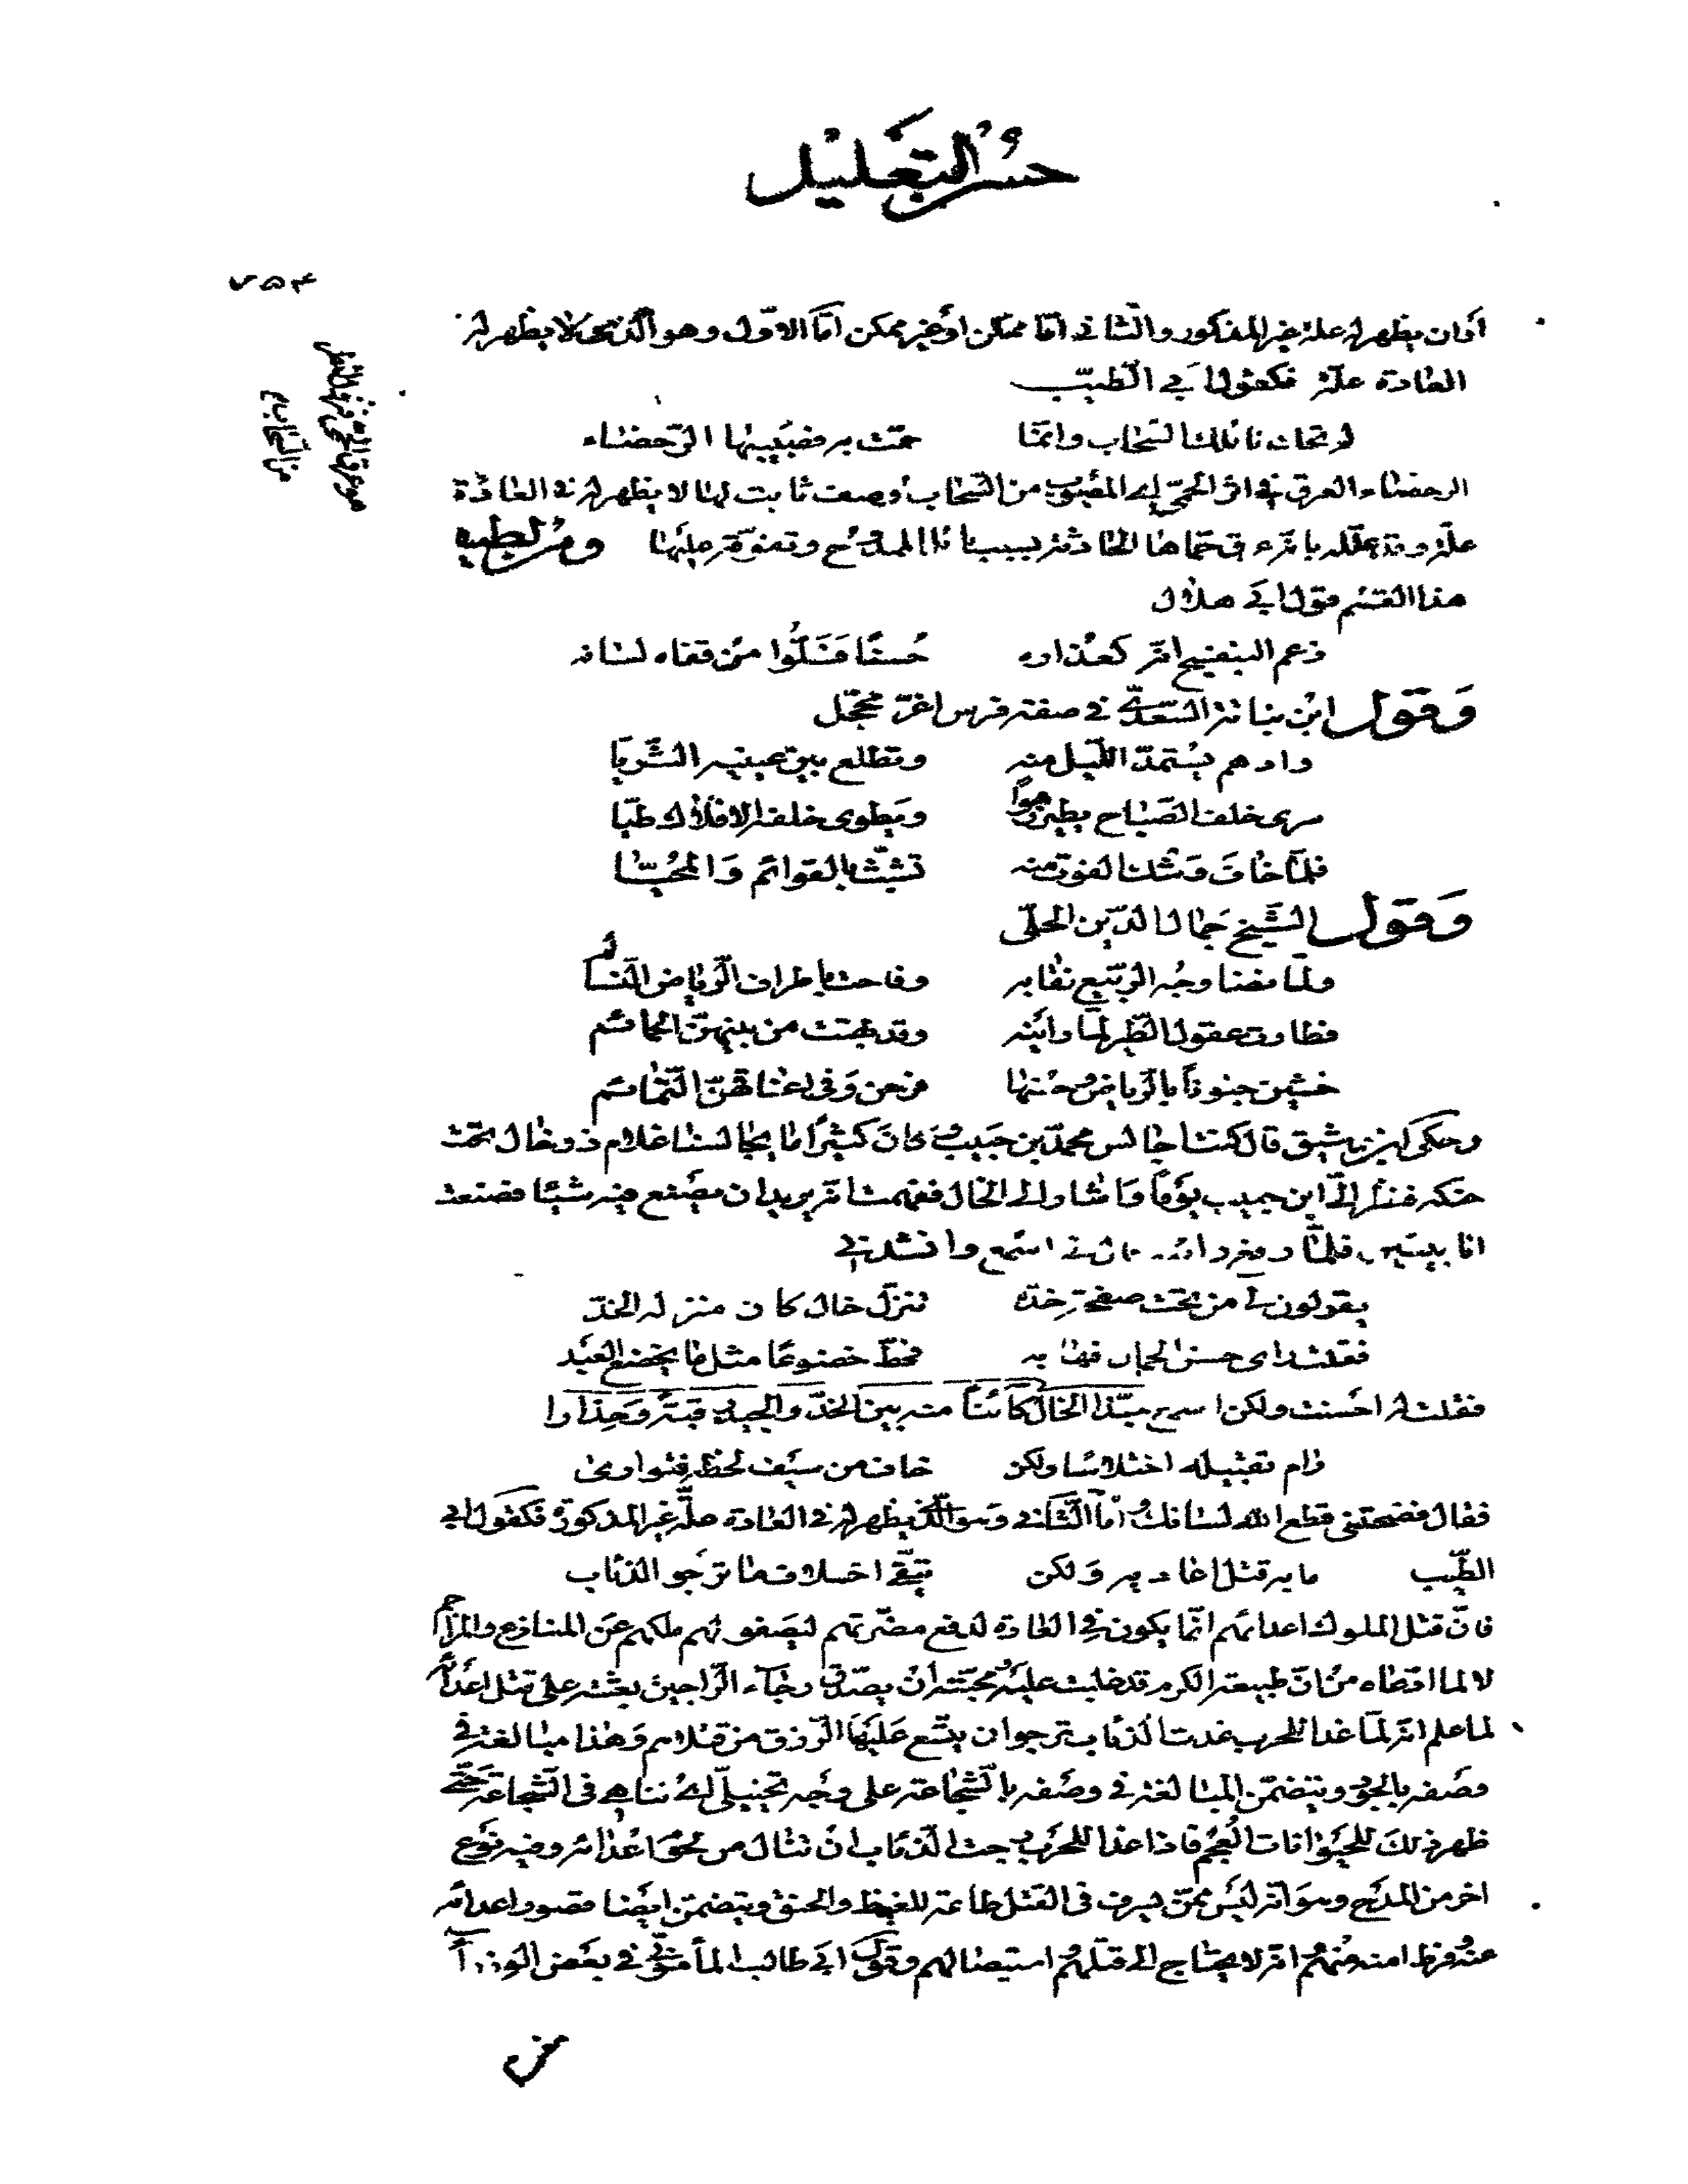 حسن التعليل
٧٥٤
او ان يظهر له علة غير المذكور والثانى امّا ممكن او غير ممكن امّا الاوّل وهو الّذى لا يظهر له
العادة علّة فكقول ابى الطّيّب
لم تحك نائلك السّحاب وانّما حمّت به فصبيبها الرّحضاء
الرحضاء العرق فى اثر الحمّى اى المصبوب من السّحاب وصف ثابت لها لا يظهر له فى العادة
علّة وقد علّله بانّه عرق حمّاها الحادثة بسبب نائل الممدوح وتفوّقه عليها ومن لطيف
هذا القسم قول ابى هلال
زعم البنفسج انّه كعذاره حُسنًا فسَلُّوا من قفاه لسانه
وَقول ابن نباتة السّعدىّ فى صفة فرس اغرّ محجّل
وادهم يستمدّ اللّيل منه وتطلع بين عينيه الثّريّا
سرى خلف الصّباح يطير زهوًا ويطوى خلفه الافلاك طيّا
فلمّا خاف وشك الفوت منه تشبّث بالقوائم والمحيّا
وَقول الشّيخ جمال الدّين الحلّى
ولمّا نضا وجه الرّبيع نقابه وفاحت باطراف الرّياض النّسائم
فطارت عقول الطّير لمّا راينه وقد بهتت من بينهنّ الحمائم
خشين جنونًا بالرّياض وحسنها فرحن وفى اعناقهنّ التّمائم
وحكى ابن رشيق قال كنت اجالس محمّد بن حبيب وكان كثيرًا ما يجالسنا غلام ذو خال تحت
حنكه فنظر الىّ ابن حبيب يومًا واشار الى الخال ففهمت انّه يريد ان يصنع فيه شيئًا فصنعت
انا بيتين فلمّا رفع راسه قال لى اسمع وانشدنى
يقولون لى من تحت صفحة خدّه تنزّل خال كان منزله الخدّ
فقلت راى حسن الجمال فهابه فحطّ خضوعًا مثل ما يخضع العبد
فقلت له احسنت ولكن اسمع حبّذا الخال كائنًا منه بين الخدّ والجيد رقبة وحذارا
رام تقبيله اختلاسًا ولكن خاف من سيف لحظه فتوارى
فقال فضحتنى قطع الله لسانك امّا الثّانى وهو الّذى يظهر له فى العادة علّة غير المذكورة فكقول ابى
الطّيب ما به قتل اعاديه وَلكن يتّقى اخلاف ما ترجو الذئاب
فانّ قتل الملوك اعدائهم انّما يكون فى العادة لدفع مضرّتهم ليصفو لهم ملكهم عن المنازع والمزاحم
لا لما اقتضاه من انّ طبيعة الكرم قد غلبت عليه ومحبّته ان يصدق رجاء الرّاجين بعثته على قتل اعدائه
لما علم انّه لمّا غدا للحرب غدت الذئاب ترجو ان يتّسع عليها الرّزق من قتلاهم وهذا مبالغة فى
وصفه بالجود ويتضمّن المبالغة فى وصفه بالشّجاعة على وجه تخييلىّ اى تناهى فى الشّجاعة حتّى
ظهر ذلك للحيوانات العجم فاذا غدا للحرب رجت الذئاب ان تنال من لحوم اعدائه وفيه نوع
اخر من المدح وهو انّه ليس ممّن يسرف فى القتل طاعة للغيظ والحنق ويتضمّن ايضا قصور اعدائه
عنه وفرط امنه منهم وانّه لا يحتاج الى قتلهم واستيصالهم وقول ابى طالب المأمونىّ فى بعض الوزراء